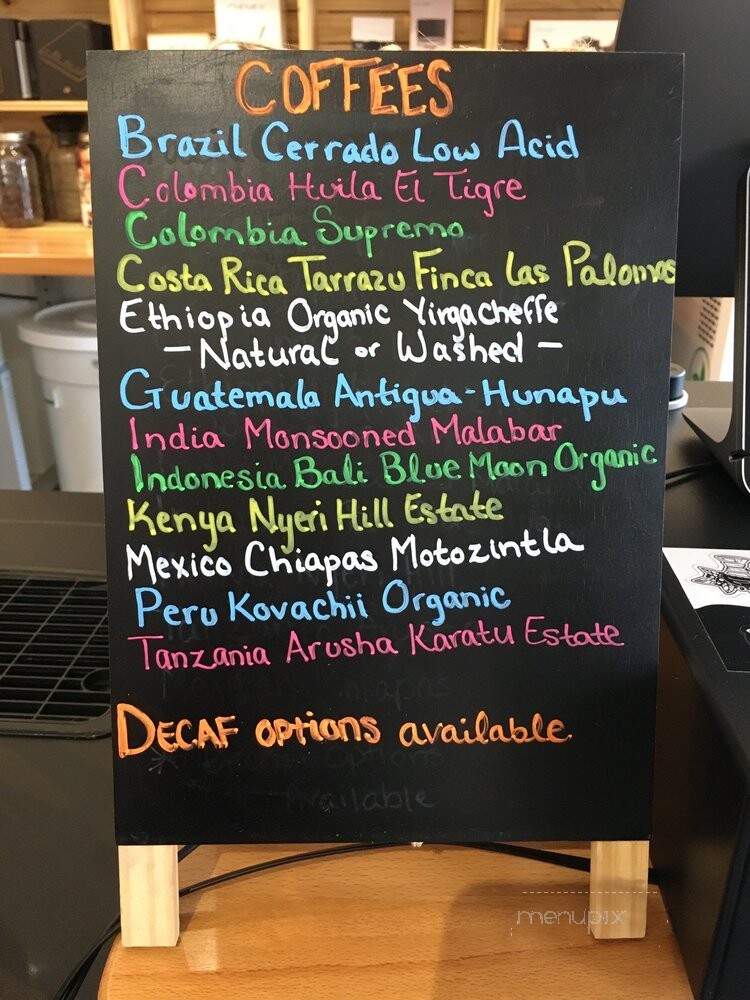 COFFEES
Brazil Cerrado Low Acid
Colombia Huila El Tigre
Colombia Supremo
Costa Rica Tarrazu Finca Las Palomas
Ethiopia Organic Yirgacheffe
- Natural or Washed -
Guatemala Antigua-Hunapu
India Monsooned Malabar
Indonesia Bali Blue Moon Organic
Kenya Nyeri Hill Estate
Mexico Chiapas Motozintla
Peru Kovachii Organic
Tanzania Arusha Karatu Estate
DECAF options available
available
menupix